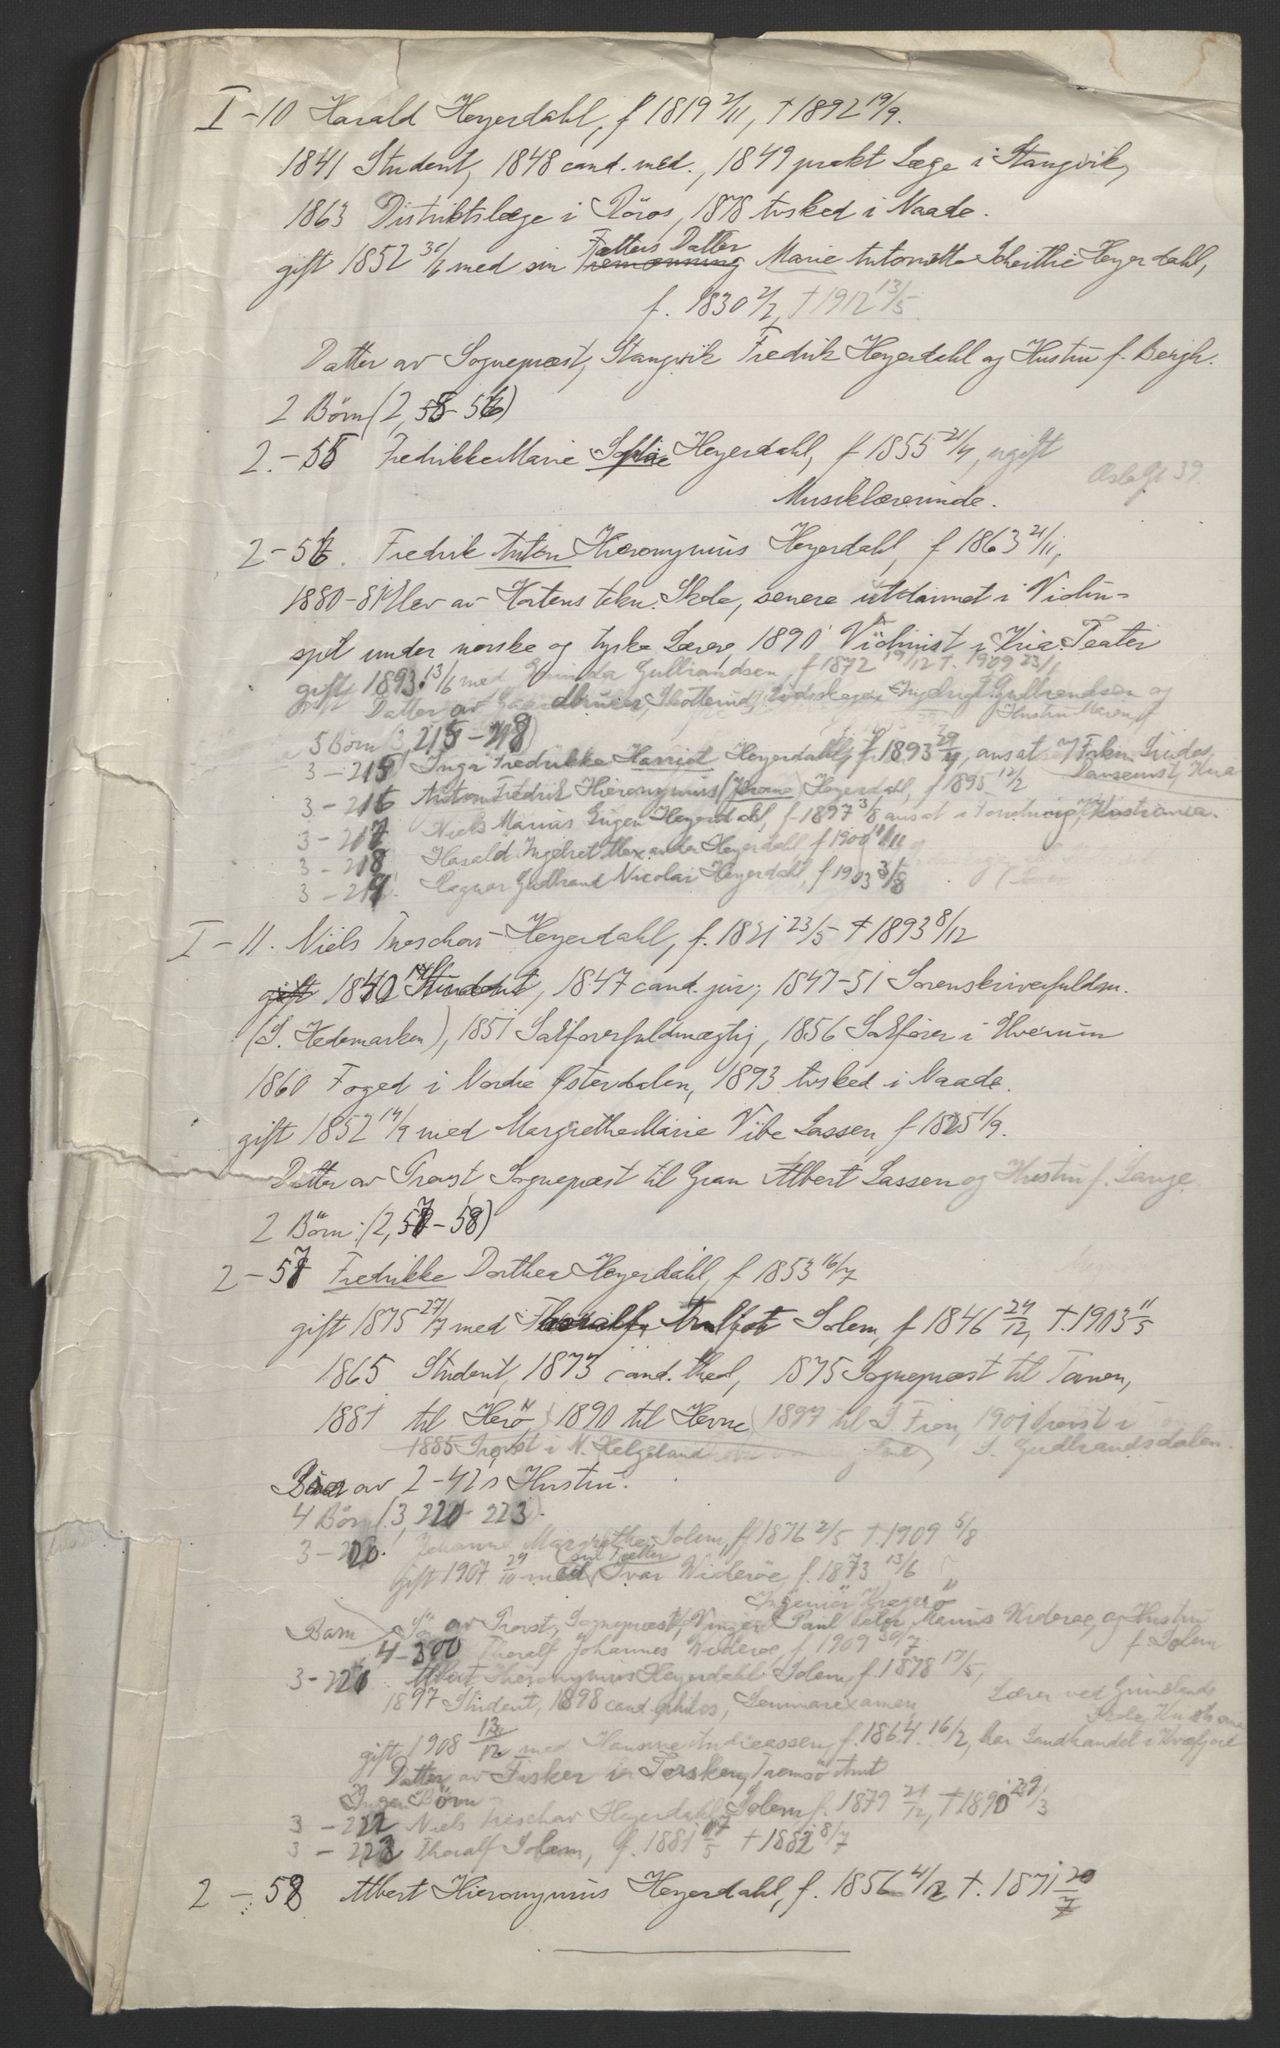 I-10 Harald Heyerdahl, f 1819 2/11, † 1892 19/9.
1841 Student, 1848 cand. med., 1849 prakt Læge i Stangvik,
1863 Distriktslæge i Röros, 1878 avsked i Naade.
gift 1852 30/6 med sin Fætters Datter Marie Antonette Scheithe Heyerdahl,
f. 1830 2/2, † 1912 13/5.
Datter av Sogneprest, Stangvik Fredrik Heyerdahl og Hustru f. Bergh.
2 Börn (2, 55-56)
2-55 Fredrikke Marie Sofie Heyerdahl, f 1855 21/4, ugift
Oslo Gt 39.
Musiklærerinde.
2-56. Fredrik Anton Hieronymus Heyerdahl, f 1863 21/11,
1880-81 Elev av Hortens tekn. Skole, senere utdannet i Violin-
spil under norske og tyske Lærere, 1890 Violinist i Kria. Teater
gift 1893 13/6 med Gulbrandsen, f 1872 19/12 †. 1909 23/1
Datter av Gaardbruker, Skotterud, Ingebrigt Gulbrandsen og
Hustru Maren f
5 Börn (3, 215-219)
3-215 Inga Fredrikke Harriet Heyerdahl, f 1893 29/9, ansat
3-216 Anton Fredrik Hieronymus (Jerome) Heyerdahl, f 1895 12/2
3-217 Niels Marius Eugen Heyerdahl, f 1897 3/8 ansat i Forretning, Kristiania.
3-218 Harald Ingebret Alexander Heyerdahl f 1900 11/11
3-219 Ragnar Gudbrand Nicolai Heyerdahl, f 1903 3/8
I-11. Niels Treschow Heyerdahl, f. 1821 23/5 † 1893 8/12
gift 1840 Student, 1847 cand. jur, 1847-51 Sorenskriverfuldm.
(S. Hedemarken), 1851 Sakförerfuldmægtig, 1856 Sakförer i Elverum
1860 Foged i Nordre Østerdalen, 1893 avsked i Naade.
gift 1852 14/9 med Margrethe Marie Vibe Lassen f 1825 1/9.
Datter av Provst Sogneprest til Gran Albert Lassen og Hustru f. Lange.
2 Börn: (2, 57-58)
2-57 Fredrikke Dorthea Heyerdahl, f 1853 16/7
gift 1875 27/7 med Thoralf Solem, f 1846 29/12, †. 1903 11/5
1865 Student, 1873 cand. theol, 1875 Sogneprest til Tranen,
1881 til Herö, 1890 til Hevne, 1897 til S Fron, 1901 Provst i
1885 Provst i N. Helgeland S. Gudbrandsdalen.
Bror av 2-42s Hustru.
4 Börn (3, 220-223).
3-220. Johanne Margrethe Solem, f 1876 2/5 † 1909 5/8
Gift 1907 29/10 med sin Fætter Ivar Wideröe, f. 1873 13/6
Ingeniör Kragerö
Sön av Provst, Sogneprest, Vinger Paul Peter Marius Wideröe, og Hustru
f Solem
Barn 4-300 Thoralf Johannes Wideröe f 1909 30/7
3-221 Albert Hieronymus Heyerdahl Solem, f 1878 17/5,
1897 Student, 1898 cand. philos, Seminarexamen, Lærer ved Grindlands
gift 1908 med Hansine Andreassen, f. 1864. 16/2, har Landhandel i Kvæfjord
Datter av Fisker i Torsken, Tromsö Amt
Ingen Börn
3-222 Niels Treschow Heyerdahl Solem f. 1879 21/12, † 1890 29/3
3-223 Thoralf Solem, f. 1881 17/5 † 1882 8/7
2-58 Albert Hieronymus Heyerdahl, f. 1856 4/12 †. 1871 20/7